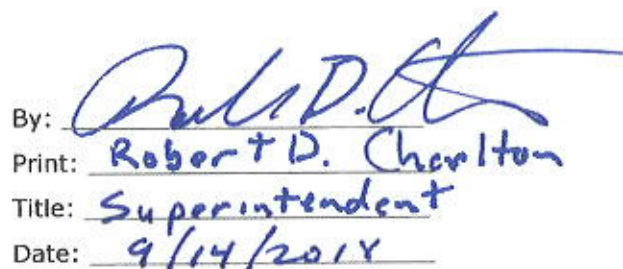 By: Rob D. Ch
Print: Robert D. Charlton
Title: Superintendent
Date: 9/14/2018